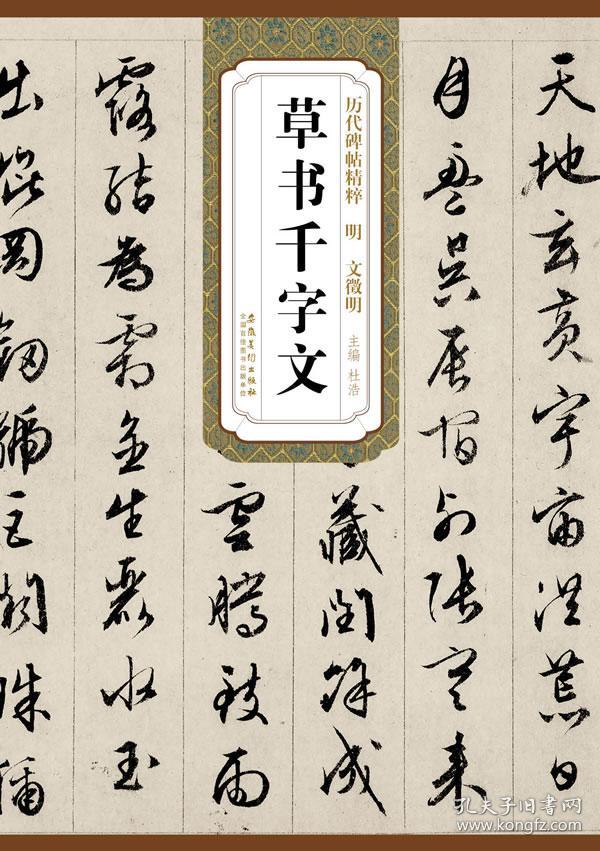 历代碑帖精粹 明 文徵明
主编 杜浩
草书千字文
安徽美术出版社
全国百佳图书出版单位
天地玄黃宇宙洪荒日
月盈昃辰宿列張寒來
藏閏餘成
雲騰致雨
露結為霜金生麗水玉
出崐岡劒號巨闕珠稱
孔夫子旧书网
www.kongfz.com